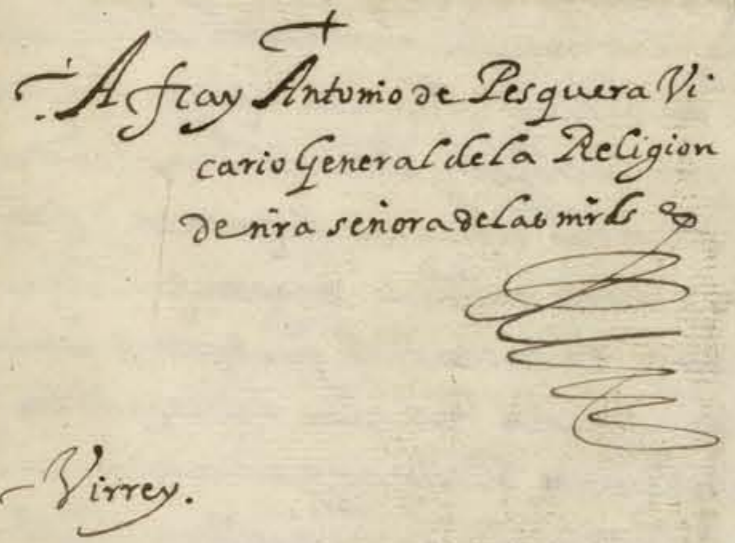 A fray Antonio de Pesquera Vi
cario General de la Religion
de nra señora de las mrds
Virrey.